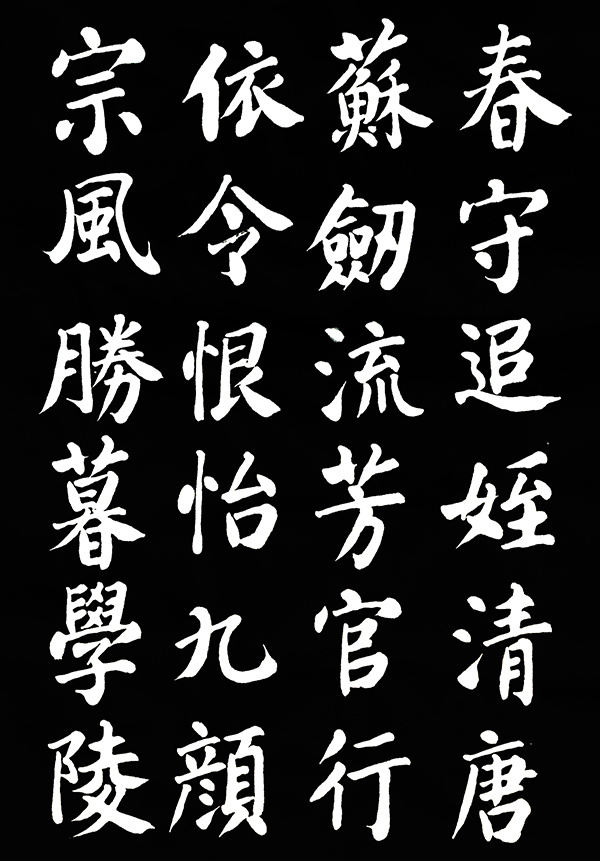 春守追姪清唐
蘇劒流芳官行
依令恨怡九顔
宗風勝暮學陵